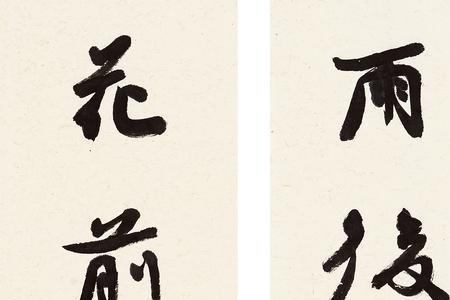 雨後
花前